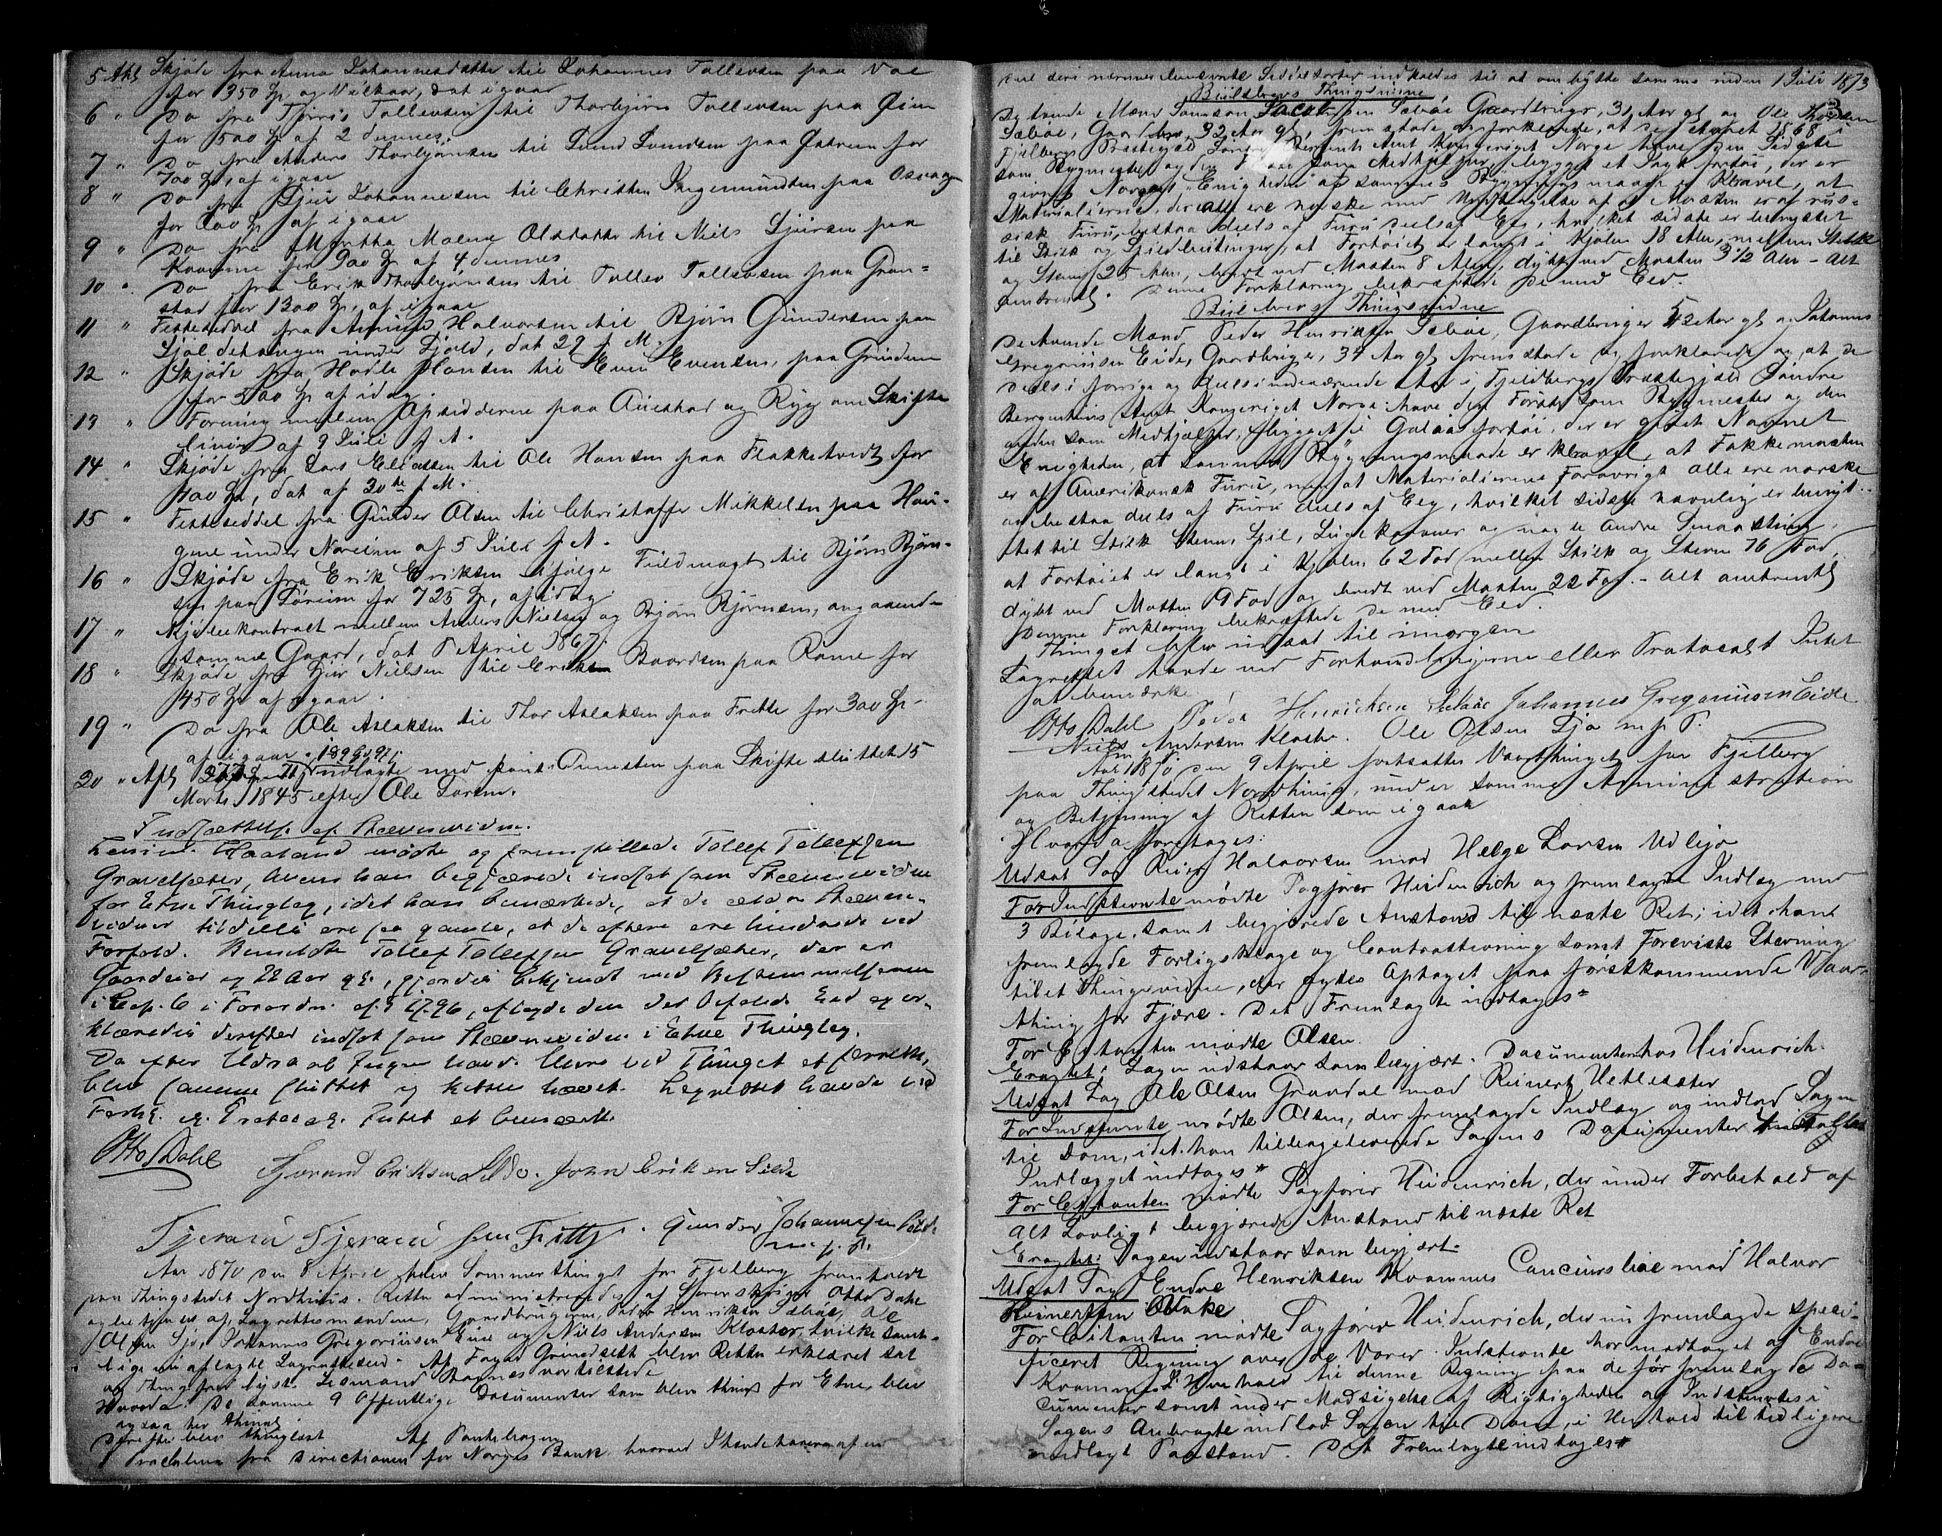 5 Afl Skjøde fra Anna Johannesdatter til Johannes Tollevsen paa Vae
for 350 Sp og Vilkaar, dat igaar
6 " Do fra Tjøris Tollevsen til Thorbjørn Tollevsen paa Øien
for 500 Sp af 2 dennes
7 " Do fra Anders Thorbjørnsen til Lund Lundsen paa Østreim for
700 Sp, af igaar
8 " Do fra Sjur Johannessen til Christen Ingemundsen paa Osvaag
for 800 Sp af igaar
9 " Do fra Martha Malene Olsdatter til Niels Sjursen paa
Kvamme for 900 Sp af 4 dennes
10 " Do fra Erik Thorbjørnsen til Tollev Tollevsen paa Grøn-
stad for 1300 Sp, af igaar
11 " Festeseddel fra Amund Halvorsen til Bjørn Gundersen paa
Sjoldehaugen under Sjold, dat 29 f. M.
12 " Skjøde fra Hadle Hansen til Even Evensen, paa Grinden
for 500 Sp af idag
13 " Forening mellem Opsidderne paa Austhad og Ryg om Skifte
linier af 9 Juli f. A.
14 " Skjøde fra Lars Eliassen til Ole Hansen paa Flakketvedt for
500 Sp, dat af 30te f. M.
15 " Festeseddel fra Gunder Olsen til Christoffer Mikkelsen paa Hau-
gene under Noreim af 5 Juli f. A.
16 " Skjøde fra Erik Eriksen ifølge Fuldmagt til Bjørn Bjørn-
sen paa Søreim for 725 Sp, af idag
17 " Kjøbekontract mellem Anders Nielsen og Bjørn Bjørnsen, angaaende
samme Gaard, dat 8 April 1867
18 " Skjøde fra Sjur Nielsen til Erik Baardsen paa Rame for
450 Sp af igaar
19 " Do fra Ole Aslaksen til Thor Aslaksen paa Frette for 300 Sp
af igaar
20 " Afl med paa Skifte sluttet 15
Marts 1845 efter Ole Larsen.
Indsættelse af Stævnevidne.
Lensm. Haaland mødte og fremstillede Tollef Tollefsen
Gravelsæter, hvem han begjærede indsat som Stævnevidne
for Etne Thinglag, idet han bemærkede, at de ældre Stævne-
vidner tildels ere saa gamle, at de oftere ere hindrede ved
Forfald. Bemeldte Tollef Tollefsen Gravelsæter, der er
Gaardeier og 22 Aar gl., gjordes bekjendt med Bestemmelserne
i Cap. 6 i Forordn. af 3 1796, aflagde den der befalede Eed og er-
klæredes derefter indsat som Stævnevidne i Etne Thinglag.
Da efter Udraab Ingen havde Mere ved Thinget at forrette,
blev samme sluttet og Retten hævet. Lagrettet havde ved
Forh. og Protocol. Intet at bemærke.
Otto Dahl
Gjerand Eriksen Silde. John Eriksen Silde
Tjeran Tjeransen Frette. Gunder Johannesen
m. p. P.
Aar 1870 den 8 April blev Sommerthinget for Fjelberg fremholdt
paa Thingstedet Nordhuus. Retten administreredes af Sorenskriver Otto Dahl
og betjentes af Lagrettesmændene, Gaardbrugerne Peder Henriksen Sæbøe, Ole
Olsen Sjo, Johannes Gregoriusen Eide og Niels Andersen Kloster, hvilke samt-
lige nu aflagte Lagrettesed. Af Foged Grimsgaard blev Retten erklæret sat
og Thingfred lyst. Lensmand Bognes var tilstede
Hvorda. De samme 9 Offentlige Documenter som blev thingl. for Etne, blev
ogsaa her thingl.
Derefter blev thinglæst Af Pantebogen
Proclama fra Directionen for Norges Bank hvorved Ihændehaverne af en
Deel deri nærmere benævnte Sedelsorter indkaldes til at ombytte samme inden 1 Juli 1873
3
Biilbrevs Thingsvidne
De tvende Mænd Samson Jacobsen Sæbøe Gaardbruger, 31 Aar gl og Ole Thorsen
Sæbøe, Gaardbr, 32 Aar gl, fremstode og forklarede, at de i Aaret 1868 i
Fjelbergs Præstegjeld Søndre Bergenhus Amt Kongeriget Norge have den Sidste
som Bygmester og den Første som Medhjelper, bygget et Jagtfartøi, der er
givet Navnet "Enigheden" at sammes Bygningsmaade er Kravel, at
Materialierne, der alle ere norske med Undtagelse af at Masten er af rus-
sisk Furu, bestaa deels af Furu deels af Eg, hvilket sidste er benyttet
til Stilk og Spilbedinger, at Fartøiet er langt i Kjølen 18 Alen, mellem Stilk
og Stevn 25 Alen, bredt ved Masten 8 Alen, dybt ved Masten 3 1/2 Alen - Alt
omtrentl. Denne Forklaring bekræftede De med Eed.
Biilbrevs Thingsvidne
De tvende Mænd Peder Henriksen Sæbøe, Gaardbruger 52 Aar gl og Johannes
Gregoriusen Eide, Gaardbruger, 34 Aar gl fremstode og forklarede, at de
deels i forrige og deels i indeværende Aar i Fjeldbergs Præstegjeld Søndre
Bergenhus Amt Kongeriget Norge have den Første som Bygmester og den
anden som Medhjælper, bygget et Galeasfartøi, der er givet Navnet
Enigheden, at sammes Bygningsmaade er kravel, at Fokkemasten
er af Amerikansk Furu, men at Materialierne forøvrigt alle ere norske
og bestaa deels af Furu deels af Eeg, hvilket sidste navnlig er benyt-
tet til Stilk Stevn, Spil, Lugekarmer og nogle andre Smaating,
at Fartøiet er langt i Kjølen 62 Fod mellem Stilk og Stevn 76 Fod,
dybt ved Masten 9 Fod og bredt ved Masten 22 Fod. - Alt omtrentlig
Denne Forklaring bekræftede De med Eed.
Thinget blev udsat til imorgen
Lagrettet havde ved Forhandlingerne eller Protocoll Intet
at bemærke
Otto Dahl Peder Henriksen Sæbøe Johannes Gregoriusen Eide
Niels Andersen Kloster. Ole Olsen Sjo m. p. P.
Aar 1870 den 9 April fortsattes Vaarthinget for Fjelberg
paa Thingstedet Nordhuus, under samme Administration
og Betjening af Retten som igaar
Hvorda foretoges:
Udsat Sag Reier Halvorsen mod Helge Larsen Utlejo
For Indstevnte mødte Sagfører Heidenreich og fremlagde Indlæg med
3 Bilage, samt begjærede Anstand til næste Ret, idet han
fremlagde Forligsklage og Contrastevning samt foreviste Stevning
til et Thingsvidne, der agtes optaget paa førstkommende Vaar-
thing for Fjære. Det Fremlagte indtages*
For Citanten mødte Olsen.
Eragtet: Sagen udstaar som begjært. Documenterne hos Heidenreich.
Udsat Sag Ole Olsen Grøndal mod Reinert Hetlesæter
For Indstevnte mødte Olsen, der fremlagde Indlæg og indlod Sagen
til Dom, idet han tilbageleverede Sagens Documenter
Indlægget indtages*
For Citanten mødte Sagfører Heidenreich, der under Forbehold af
Alt Lovligt begjærede Anstand til næste Ret
Eragtet: Sagen udstaar som begjært-
Udsat Sag Endre Henriksen Kvammes Concursboe mod Halvor
Reinertsen Ølnke
For Citanten mødte Sagfører Heidenreich, der nu fremlagde speci-
ficeret Regning over de Varer Indstevnte har modtaget af Endre
Kvamme. I Henhold til denne Regning paa de før fremlagde Do-
cumenter samt under Modsigelse af Rigtigheden af Indstevntes i
Sagens Anbragte indlod Sagen til Dom, i Henhold til tidligere
nedlagt Paastand. Det Fremlagte indtages*